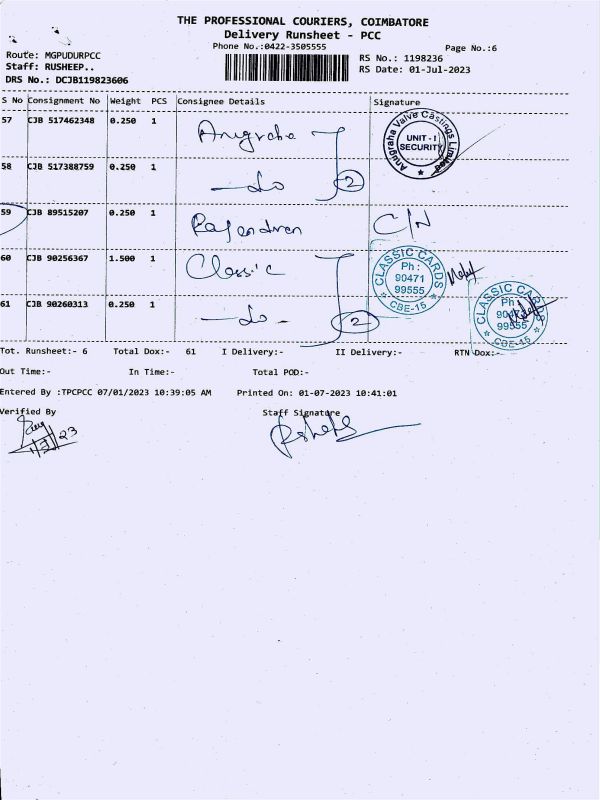 THE PROFESSIONAL COURIERS, COIMBATORE
Delivery Runsheet - PCC
Phone No.:0422-3505555
Page No.:6
Route: MGPUDURPCC
RS No.: 1198236
Staff: RUSHEEP..
RS Date: 01-Jul-2023
DRS No.: DCJB119823606
S No Consignment No Weight PCS Consignee Details Signature
57 CJB 517462348 0.250 1 Anugraha
Anugraha Valve Castings Limited
UNIT - I
SECURITY
58 CJB 517388759 0.250 1 -do 2
59 CJB 89515207 0.250 1 Rajendren C/N
60 CJB 90256367 1.500 1 Classic
CLASSIC CARDS
Ph :
90471
99555
CBE-15
61 CJB 90260313 0.250 1 -do- 2
CLASSIC CARDS
Ph :
90471
99555
CBE-15
Tot. Runsheet:- 6 Total Dox:- 61 I Delivery:- II Delivery:- RTN Dox:-
Out Time:- In Time:- Total POD:-
Entered By :TPCPCC 07/01/2023 10:39:05 AM Printed On: 01-07-2023 10:41:01
Verified By Staff Signature